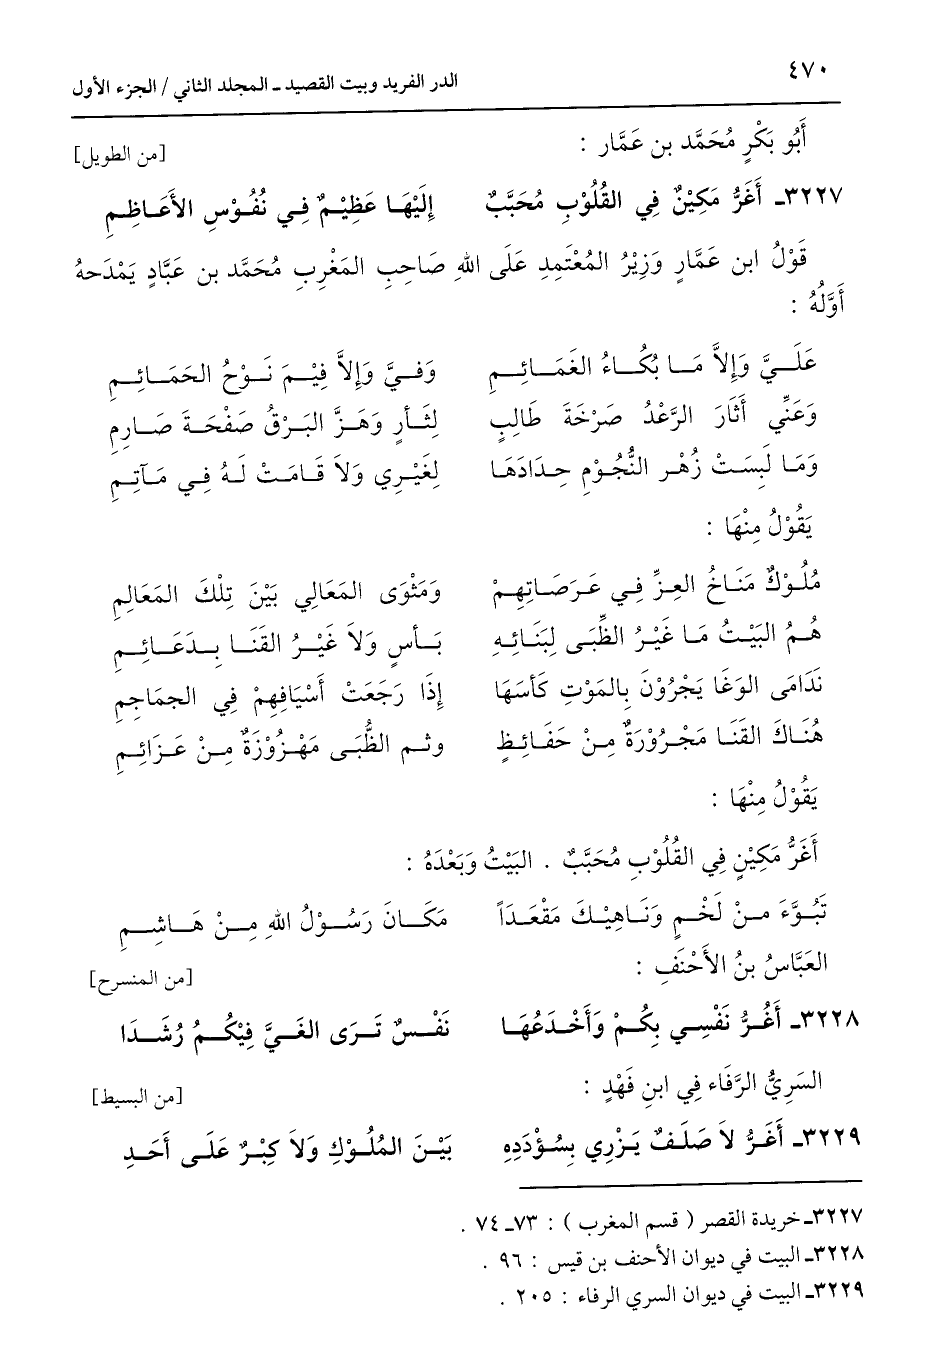 ٤٧٠ الدر الفريد وبيت القصيد ـ المجلد الثاني / الجزء الأول
أَبُو بَكْرٍ مُحَمَّد بن عَمَّار : [من الطويل]
٣٢٢٧ـ أَغَرُّ مَكِيْنٌ فِي القُلُوْبِ مُحَبَّبٌ إِلَيْهَا عَظِيْمٌ فِي نُفُوْسِ الأَعَاظِمِ
قَوْلُ ابن عَمَّارٍ وَزِيْرُ المُعْتَمِدِ عَلَى اللهِ صَاحِبِ المَغْرِبِ مُحَمَّد بن عَبَّادٍ يَمْدَحهُ
أَوَّلُهُ :
عَلَيَّ وَإِلاَّ مَا بُكَاءُ الغَمَائِمِ وَفيَّ وَإِلاَّ فِيْمَ نَوْحُ الحَمَائِمِ
وَعَنِّي أَثَارَ الرَّعْدُ صَرْخَةَ طَالِبٍ لِثَأرٍ وَهَزَّ البَرْقُ صَفْحَةَ صَارِمِ
وَمَا لَبِسَتْ زُهْر النُّجُوْمِ حِدَادَهَا لِغَيْرِي وَلاَ قَامَتْ لَهُ فِي مَآتِمِ
يَقُوْلُ مِنْهَا :
مُلُوْكٌ مَنَاخُ العِزِّ فِي عَرَصَاتِهِمْ وَمَثْوَى المَعَالِي بَيْنَ تِلْكَ المَعَالِمِ
هُمُ البَيْتُ مَا غَيْرُ الظِّبَى لِبَنَائِهِ بَأسٍ وَلاَ غَيْرُ القَنَا بِدَعَائِمِ
نَدَامَى الوَغَا يَجْرُوْنَ بِالمَوْتِ كَأسَهَا إِذَا رَجَعَتْ أَسْيَافِهِمْ فِي الجماجِمِ
هُنَاكَ القَنَا مَجْرُوْرَةٌ مِنْ حَفَائِظٍ وثم الظُّبَى مَهْزُوْزَةٌ مِنْ عَزَائِمِ
يَقُوْلُ مِنْهَا :
أَغَرُّ مَكِيْنٍ فِي القُلُوْبِ مُحَبَّبٌ . البَيْتُ وَبَعْدَهُ :
تَبُوَّءَ مِنْ لَخْمٍ وَنَاهِيْكَ مَقْعَدَاً مَكَانَ رَسُوْلُ اللهِ مِنْ هَاشِمِ
العَبَّاسُ بنُ الأَحْنَفِ : [من المنسرح]
٣٢٢٨ـ أَغُرُّ نَفْسِي بِكُمْ وَأَخْدَعُهَا نَفْسٌ تَرَى الغَيَّ فِيْكُمُ رُشَدَا
السَرِيُّ الرَّفَاء فِي ابنِ فَهْدٍ : [من البسيط]
٣٢٢٩ـ أَغَرُّ لاَ صَلَفٌ يَزْرِي بِسُؤْدَدِهِ بَيْنَ المُلُوْكِ وَلاَ كِبْرٌ عَلَى أَحَدِ
٣٢٢٧ـ خريدة القصر ( قسم المغرب ) : ٧٣ـ ٧٤ .
٣٢٢٨ـ البيت في ديوان الأحنف بن قيس : ٩٦ .
٣٢٢٩ـ البيت في ديوان السري الرفاء : ٢٠٥ .